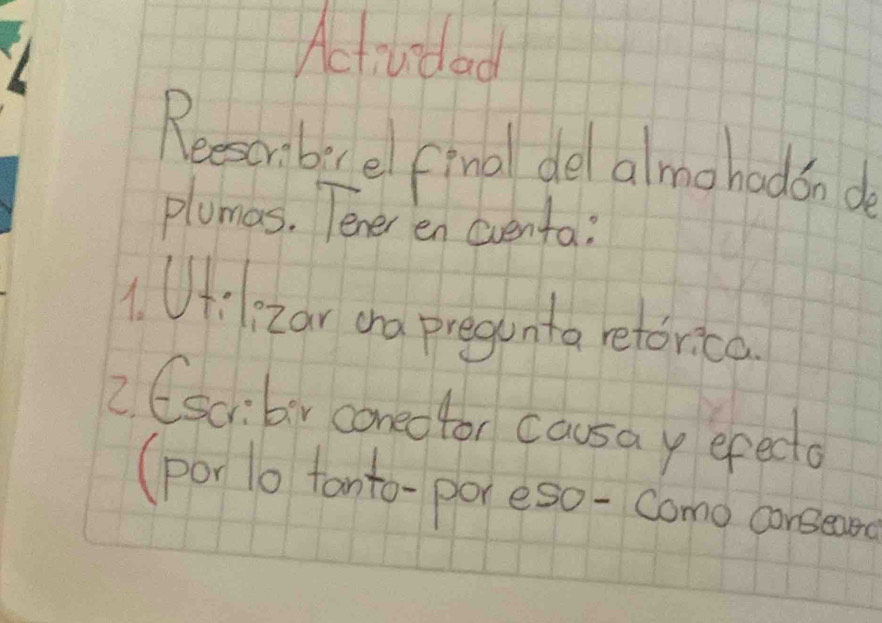 Actividad
Reescribir el final del almohadón de
plumas. Tener en cuenta:
1. Utilizar una pregunta retórica.
2. Escribir conector causa y efecto
(por lo tanto - por eso - como